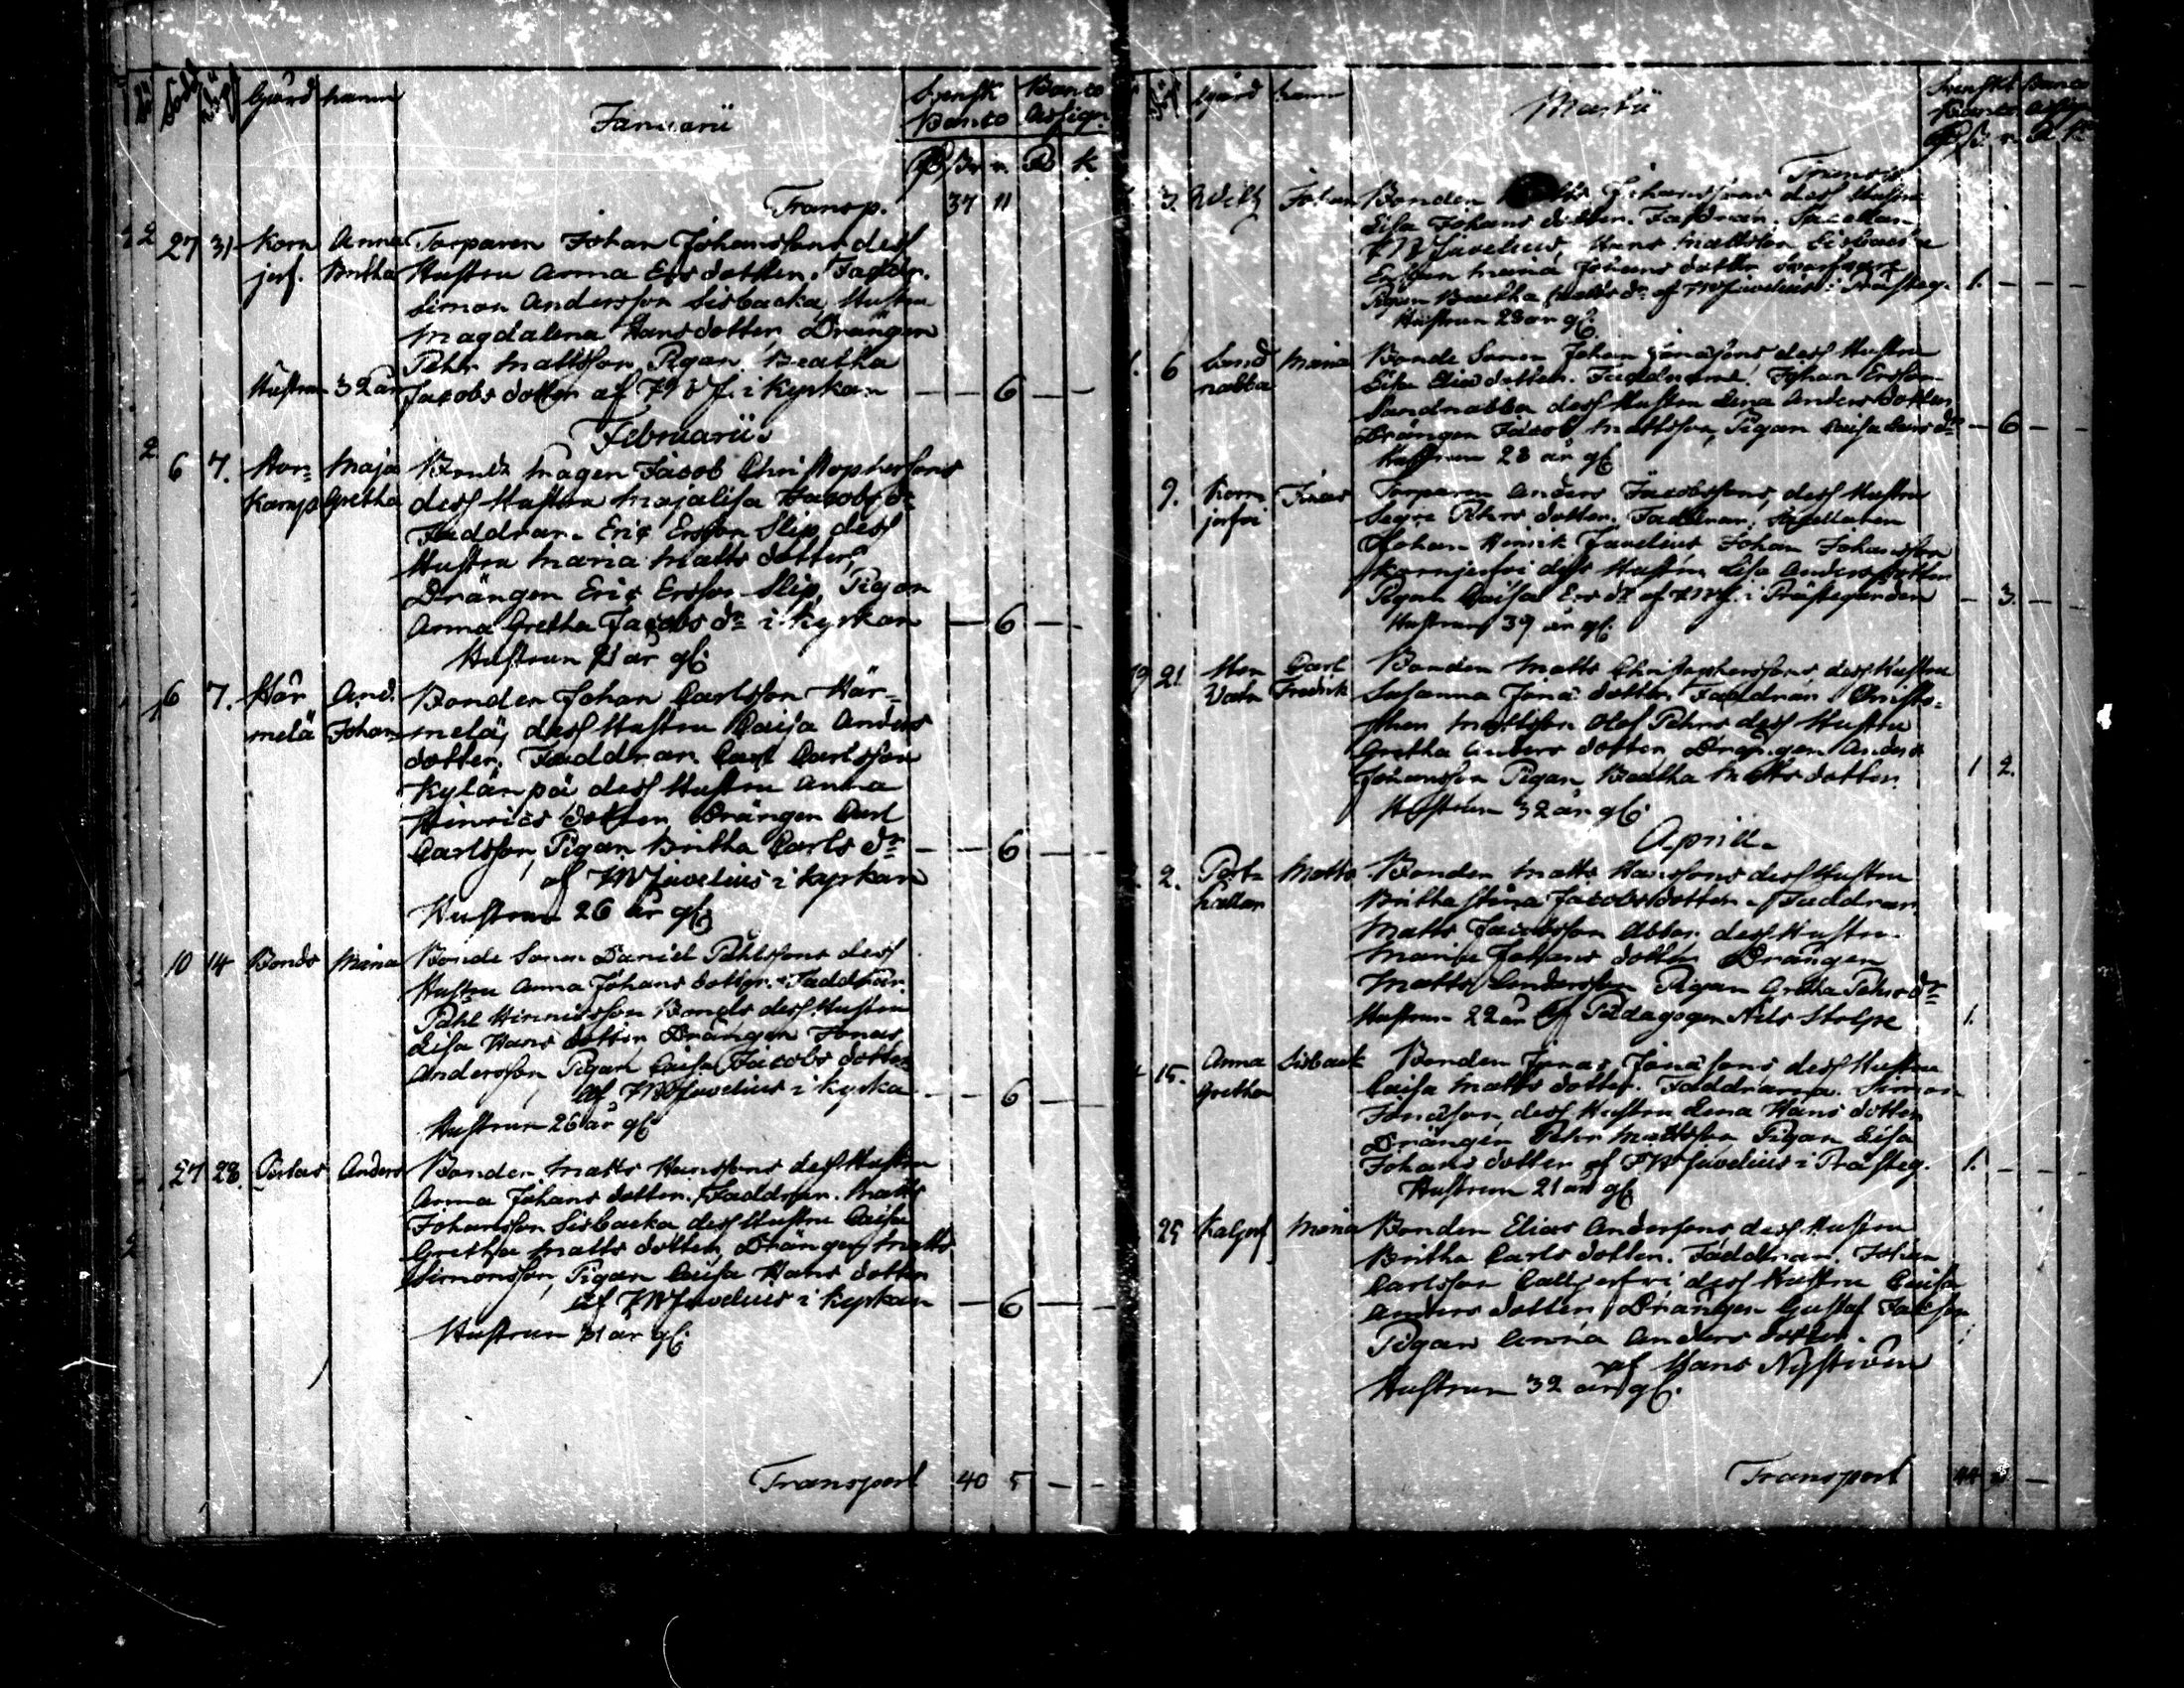 Född Döpt Gård namn Januarii Svensk Banco Banco Assign.
Transp. 37 11
2 27 31 Korn Anna Torparen Johan Johanssons dess
jerf. Britha Hustru Anna Ersdotter. Faddr.
Simon Andersson Sisbacka, Hustru
Magdalena Hansdotter, Drängen
Pehr Mattsson Pigan Beatha
Hustrun 32 år Jacobs dotter af i Kyrkan — — 6 — —
Februarii
2 6 7. Stor= Maja Jacob Christophersons
Kamp Gretha dess Hustru Majalisa Jacobs dr
Faddrar. Eric Ersson Slip dess
Hustru Maria Matts dotter,
Drängen Eric Ersson Slip, Pigan
Anna Gretha Jacobs dr i Kyrkan — 6 —
Hustrun 21 år gl.
6 7. Här And. Bonden Johan Carlsson Här=
melä Johan melä, dess Hustru Caisa Anders
dotter. Faddrar. Carl Carlsson
Kylänpä dess Hustru Anna
Hinrics dotter Drängen Carl
Carlsson, Pigan Britha Carls dr — — 6 — —
af Juvelius i Kyrkan
Hustrun 26 år gl.
10 14 Bonds Maria Bonde Sonen Daniel Påhlssons dess
Hustru Anna Johans dotter. Faddrar
Påhl Hinricsson Bonds dess Hustru
Lisa Hans dotter, Drängen Jonas
Andersson Pigan Caisa Jacobs dotter
af Juvelius i Kyrka — — 6 — —
Hustrun 26 år gl.
27 28. Anders Bonden Matts Hanssons dess Hustru
Anna Johans dotter. Faddrar. Matts
Johansson Sisbacka dess Hustru Caisa
Gretha Matts dotter, Drängen Matts
Simonsson, Pigan Caisa Hans dotter
af Juvelius i Kyrkan — 6 — —
Hustrun 31 år gl.
Transport 40 5 — —
Gård namn Martii Svenskt Banco Banco Assign
3. Johan Bonden Johanssons dess Hustru
Lisa Johans dotter. Faddrar. Sacellan
Juvelius, Hans Mattsson Sisbacka
Maria Johans dotter
Pigan Beatha Matts dr af Juvelius i Prästeg. 1. — — —
Hustrun 23 år gl.
6 Sand Maria Bonde Sonen Johan Jonassons dess Hustru
nabba Lisa Elias dotter. Faddrarne. Johan Ersson
Sandnabba dess Hustru Lena Anders dotter
Drängen Jacob Mattsson, Pigan Caisa dr — 6 — —
Hustrun 23 år gl.
9. Korn Jonas Torparen Anders Jacobssons, dess Hustru
jerfvi Pehrs dotter. Faddrar. Sacellanen
Johan Henrik Juvelius Johan Johansson
Kornjerfvi dess Hustru Lisa Andersdotter
Pigan Caisa Ers dr af i Prästegården — 3. — —
Hustrun 39 år gl.
21 Carl Bonden Matts Christophersons dess Hustru
Fredrik Susanna Jonas dotter. Faddrar. Christo=
pher Mattsson Olof Pehrs dess Hustru
Gretha Anders dotter Drängen Anders
Johansson Pigan Beatha Matts dotter. 1 2.
Hustrun 32 år gl.
April.
2. Post= Matts Bonden Matts Hanssons dess Hustru
hållar Britha Stina Jacobs dotter. Faddrar.
Matts Jacobsson dess Hustru.
Maria Johans dotter Drängen
Matts Pigan Greta Pehrs dr
Hustrun 22 år af Pedagogen Nils Stolpe 1.
15. Anna Sisback Bonden Jonas Jonassons dess Hustru
Gretha Caisa Matts dotter. Faddrarna. Simon
Jonasson, dess Hustru Lena Hans dotter
Drängen Pehr Mattsson Pigan Lisa
Johans dotter af Juvelius i Prästeg. 1. — — —
Hustrun 21 år gl.
25 Kaljerf Maria Bonden Elias Anderssons dess Hustru
Britha Carls dotter. Faddrar. Johan
Carlsson Calljerfvi dess Hustru Caisa
Anders dotter, Drängen Gustaf
Pigan Anna Anders dotter.
af Hans Nyström
Hustrun 32 år gl.
Transport 44 —